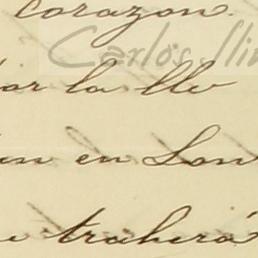 corazon.
Carlos Slim
la lle
en Lon
traherá